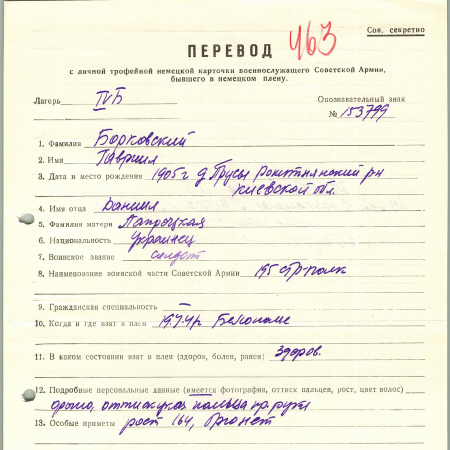 463
Сов. секретно
ПЕРЕВОД
с личной трофейной немецкой карточки военнослужащего Советской Армии,
бывшего в немецком плену.
Лагерь IVБ
Опознавательный знак
№ 153799
1. Фамилия Борковский
2. Имя Гавриил
3. Дата и место рождения 1905г д. Трусы Рокитнянский рн
Киевской обл.
4. Имя отца Даниил
5. Фамилия матери Папроцкая
6. Национальность Украинец
7. Воинское звание солдат
8. Наименование воинской части Советской Армии 195 стр-полк
9. Гражданская специальность –
10. Когда и где взят в плен
11. В каком состоянии взят в плен (здоров, болен, ранен) Здоров.
12. Подробные персональные данные (имеется фотография, оттиск пальцев, рост, цвет волос)
фото, оттиск указ пальца пр. руки
13. Особые приметы рост 164, брюнет